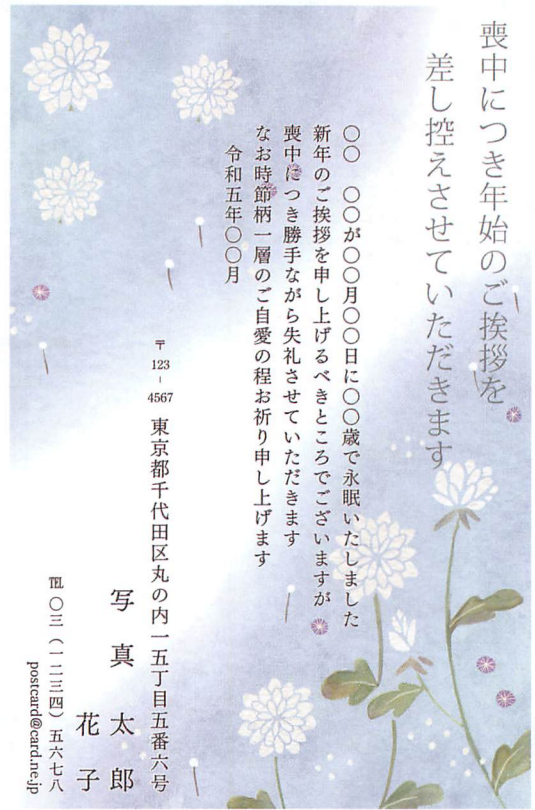 喪中につき年始のご挨拶を
差し控えさせていただきます
〇〇　〇〇が〇〇月〇〇日に〇〇歳で永眠いたしました
新年のご挨拶を申し上げるべきところでございますが
喪中につき勝手ながら失礼させていただきます
なお時節柄一層のご自愛の程お祈り申し上げます
令和五年〇〇月
〒123-4567 東京都千代田区丸の内一五丁目五番六号
写真 太郎
花子
℡ 〇三（一二三四）五六七八
postcard@card.ne.jp